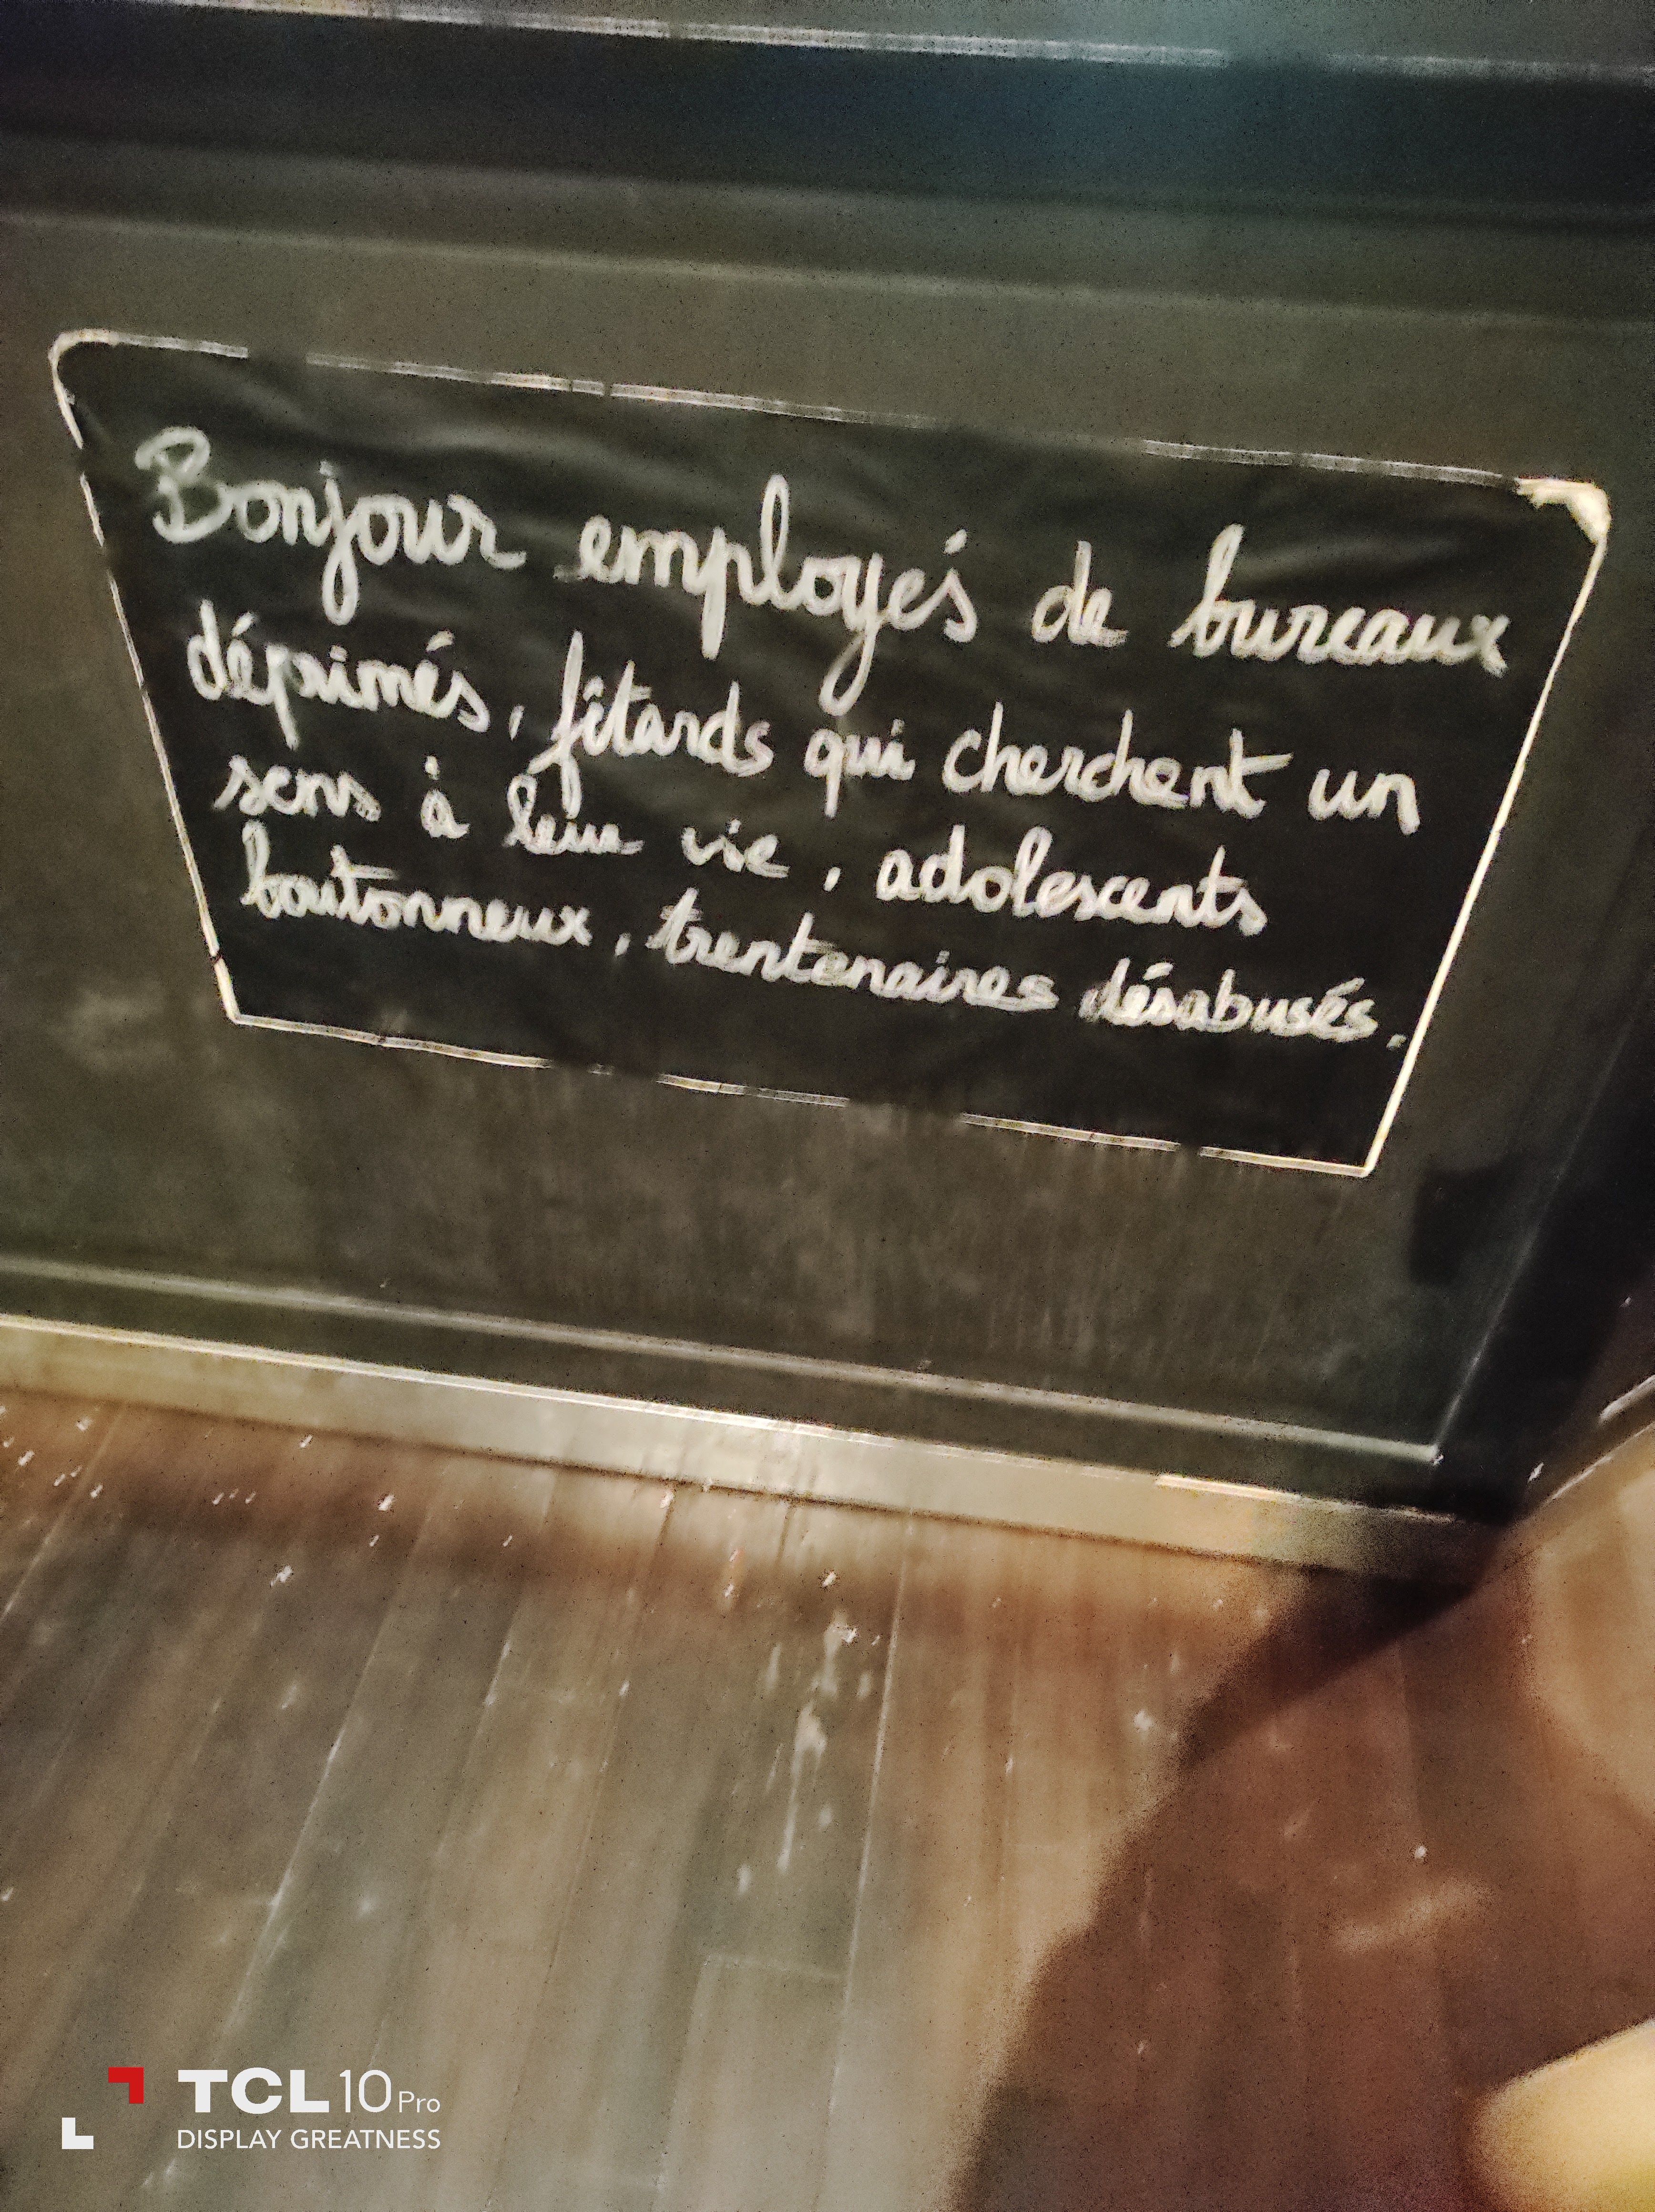 Bonjour employés de bureaux
déprimés, fêtards qui cherchent un
sens à leur vie, adolescents
boutonneux, trentenaires désabusés.
TCL 10 Pro
DISPLAY GREATNESS